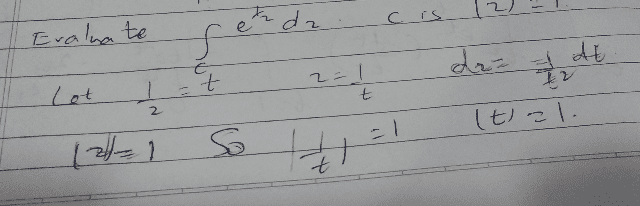 Evaluate ∫_C e^{1/z} dz. C is |z| = 1
Let 1/z = t z = 1/t dz = -1/t² dt
|z| = 1 So |1/t| = 1 |t| = 1.